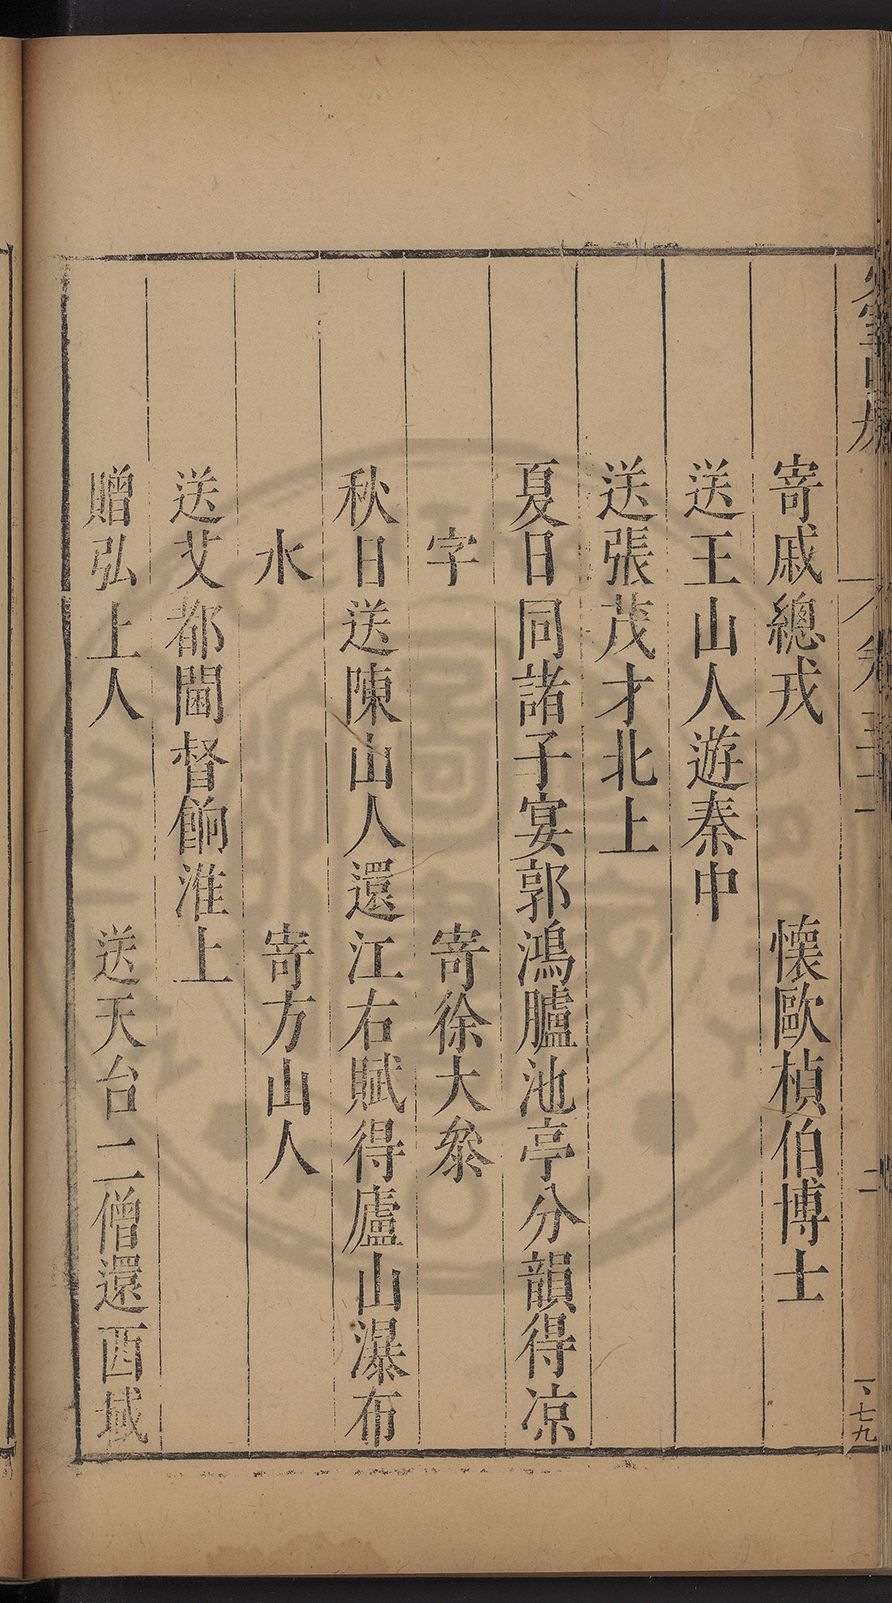 寄戚總戎 懷歐楨伯博士
送王山人遊秦中
送張茂才北上
夏日同諸子宴郭鴻臚池亭分韻得凉
字 寄徐大參
秋日送陳山人還江右賦得廬山瀑布
水 寄方山人
送艾都閫督餉淮上
贈弘上人 送天台二僧還西域
二
一、七九